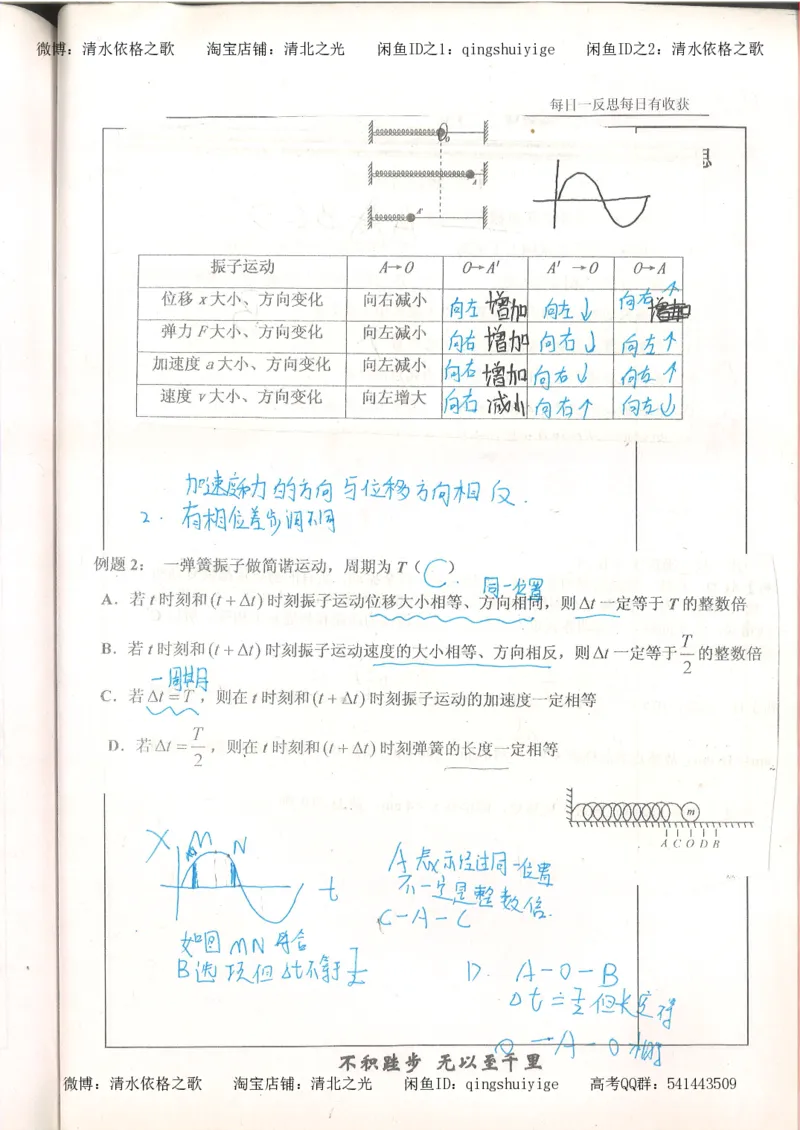 微博：清水依格之歌 淘宝店铺：清北之光 闲鱼ID之1：qingshuiyige 闲鱼ID之2：清水依格之歌
每日一反思每日有收获
O
A
A′
振子运动 A→O O→A′ A′→O O→A
位移 x 大小、方向变化 向右减小 向左 增加 向左↓ 向右↑ 增加
弹力 F 大小、方向变化 向左减小 向右 增加 向右↓ 向左↑
加速度 a 大小、方向变化 向左减小 向右 增加 向右↓ 向左↑
速度 v 大小、方向变化 向左增大 向右 减小 向右↑ 向左↓
加速度和力的方向与位移方向相反.
2. 有相位差步调不同
例题 2： 一弹簧振子做简谐运动，周期为 T（ C ）
同一位置
A．若 t 时刻和(t+Δt)时刻振子运动位移大小相等、方向相同，则Δt一定等于 T 的整数倍
B．若 t 时刻和(t+Δt)时刻振子运动速度的大小相等、方向相反，则Δt一定等于 T/2 的整数倍
一周期
C．若Δt=T，则在 t 时刻和(t+Δt)时刻振子运动的加速度一定相等
D．若Δt=T/2，则在 t 时刻和(t+Δt)时刻弹簧的长度一定相等
m
A C O D B
X M N t
A表示经过同一位置
不一定是整数倍.
C-A-C
如图 MN 符合
B选项但Δt不等于T/2
D. A-O-B
O→A-O
不积跬步 无以至千里
微博：清水依格之歌 淘宝店铺：清北之光 闲鱼ID：qingshuiyige 高考QQ群：541443509